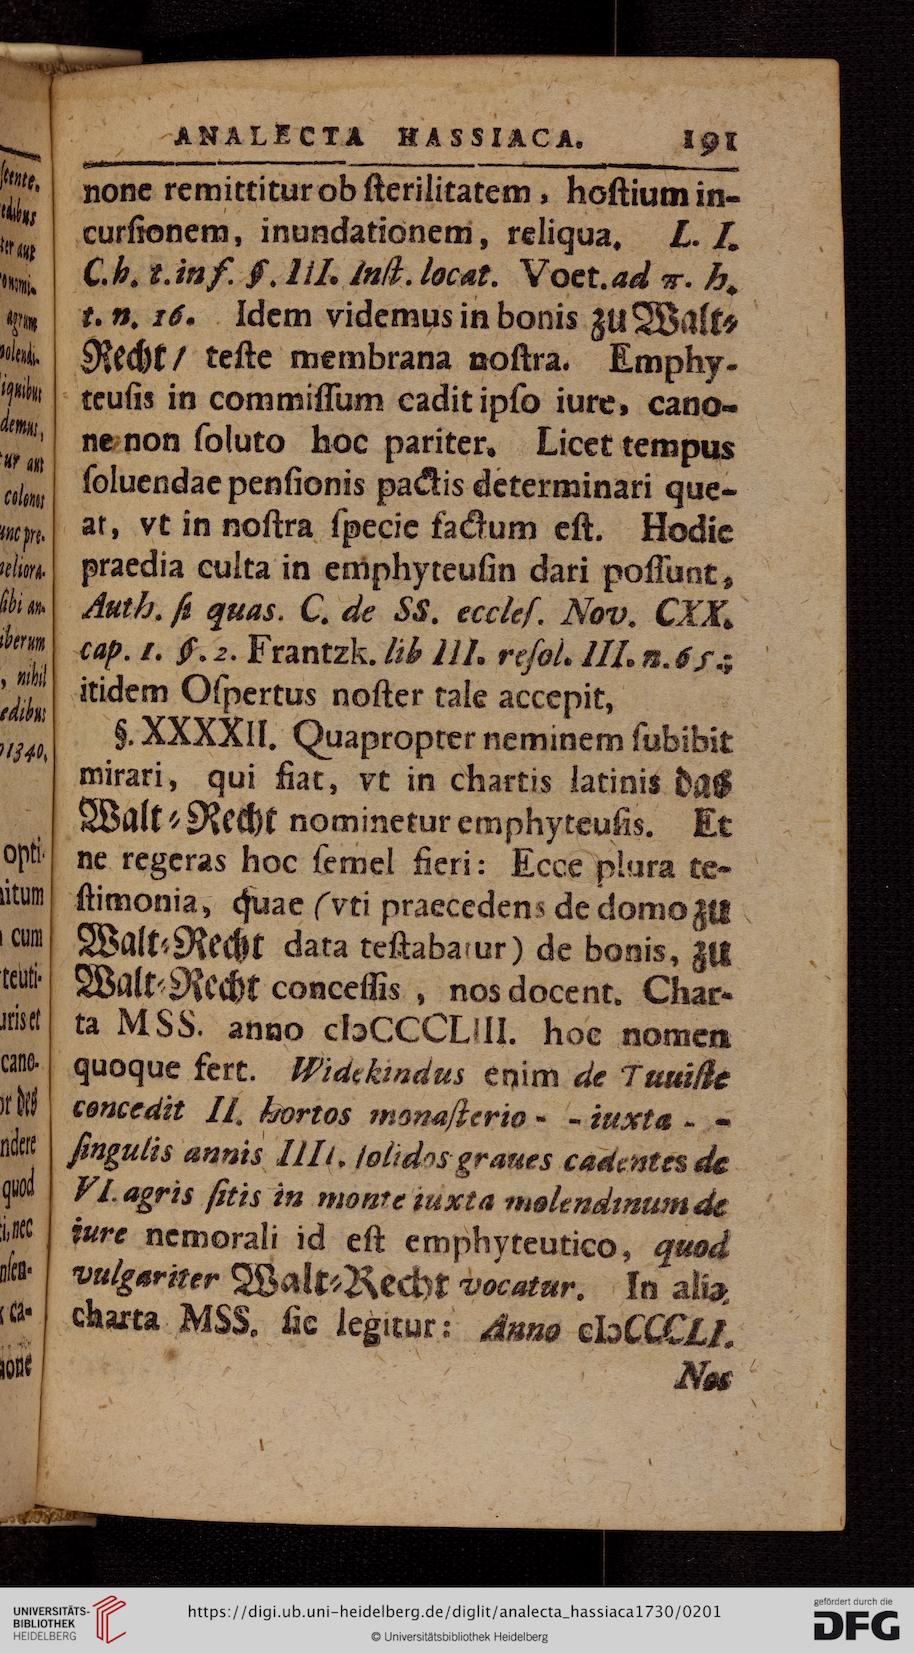 ANALECTA HASSIACA. 191
none remittitur ob ſterilitatem, hoſtium in-
curſionem, inundationem, reliqua. L. I.
C. h. t. inf. §. III. Inſt. locat. Voet. ad π. h.
t. n. 16. Idem videmus in bonis zu Walt⸗
Recht/ teſte membrana noſtra. Emphy-
teuſis in commiſſum cadit ipſo iure, cano-
ne non ſoluto hoc pariter. Licet tempus
ſoluendae penſionis pactis determinari que-
at, vt in noſtra ſpecie factum eſt. Hodie
praedia culta in emphyteuſin dari poſſunt,
Auth. ſi quas. C. de SS. eccleſ. Nov. CXX.
cap. 1. §. 2. Frantzk. lib III. reſol. III. n. 65.;
itidem Oſpertus noſter tale accepit,
§. XXXXII. Quapropter neminem ſubibit
mirari, qui fiat, vt in chartis latinis das
Walt⸗Recht nominetur emphyteuſis. Et
ne regeras hoc ſemel fieri: Ecce plura te-
ſtimonia, quae (vti praecedens de domo zu
Walt⸗Recht data teſtabatur) de bonis, zu
Walt⸗Recht conceſſis, nos docent. Char-
ta MSS. anno cIↄCCCLIII. hoc nomen
quoque fert. Widekindus enim de Tuuiſte
concedit II. hortos monaſterio - - iuxta - -
ſingulis annis IIII. ſolidos graues cadentes de
VI. agris ſitis in monte iuxta molendinum de
iure nemorali id eſt emphyteutico, quod
vulgariter Walt⸗Recht vocatur. In alia
charta MSS. ſic legitur: Anno cIↄCCCLI.
Nos
opti-
cum
teuti-
uris et
cano-
ndere
quod
demus,
colonos
nihil
edibus
1340.
UNIVERSITÄTS-
BIBLIOTHEK
HEIDELBERG
https://digi.ub.uni-heidelberg.de/diglit/analecta_hassiaca1730/0201
© Universitätsbibliothek Heidelberg
gefördert durch die
DFG